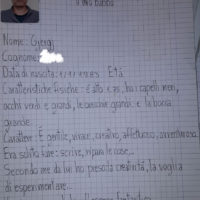 il mio babbo
Nome: Gyergj
Cognome:
Data di nascita: 1/11/1983 Età:
Caratteristiche fisiche: È alto 1,75, ha i capelli neri,
occhi verdi e grandi, le orecchie grandi e la bocca
grande.
Carattere: È gentile, vivace, creativo, affettuoso, avventuroso.
Era solito fare: scrive, ripara le cose...
Secondo me da lui ho preso la creatività, la voglia
di esperimentare...